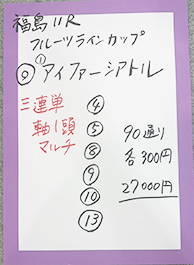 福島11R
フルーツラインカップ
①
⑨アイファーシアトル
三連単
軸1頭
マルチ
④
⑤
⑧
⑨
⑩
⑬
90通り
各300円
27000円